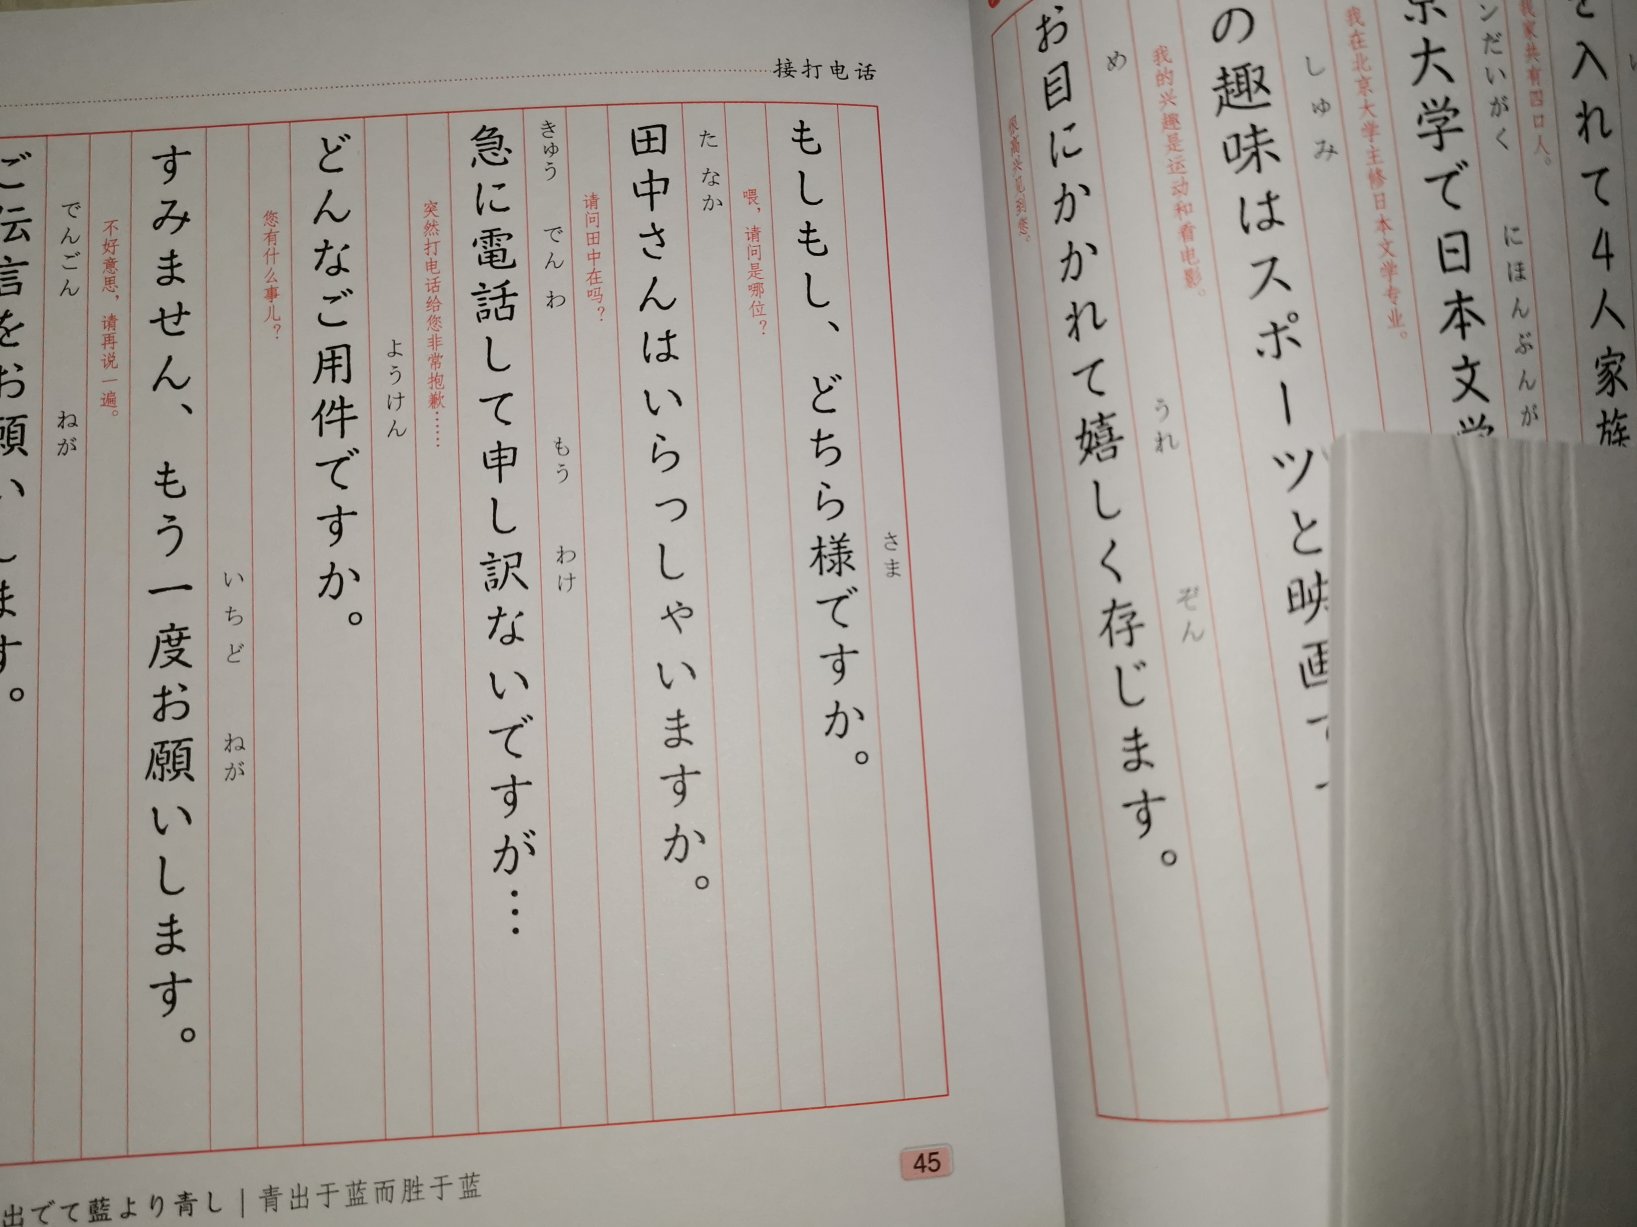 を入れて4人家族
我家共有四口人。
ンだいがく にほんぶんが
京大学で日本文学
我在北京大学主修日本文学专业。
しゅみ
の趣味はスポーツと映画で
我的兴趣是运动和看电影。
め うれ ぞん
お目にかかれて嬉しく存じます。
很高兴见到您。
接打电话
さま
もしもし、どちら様ですか。
喂，请问是哪位？
たなか
田中さんはいらっしゃいますか。
请问田中在吗？
きゅう でんわ もう わけ
急に電話して申し訳ないですが…
突然打电话给您非常抱歉……
ようけん
どんなご用件ですか。
您有什么事儿？
いちど ねが
すみません、もう一度お願いします。
不好意思，请再说一遍。
でんごん ねが
ご伝言をお願いします。
45
出でて藍より青し | 青出于蓝而胜于蓝